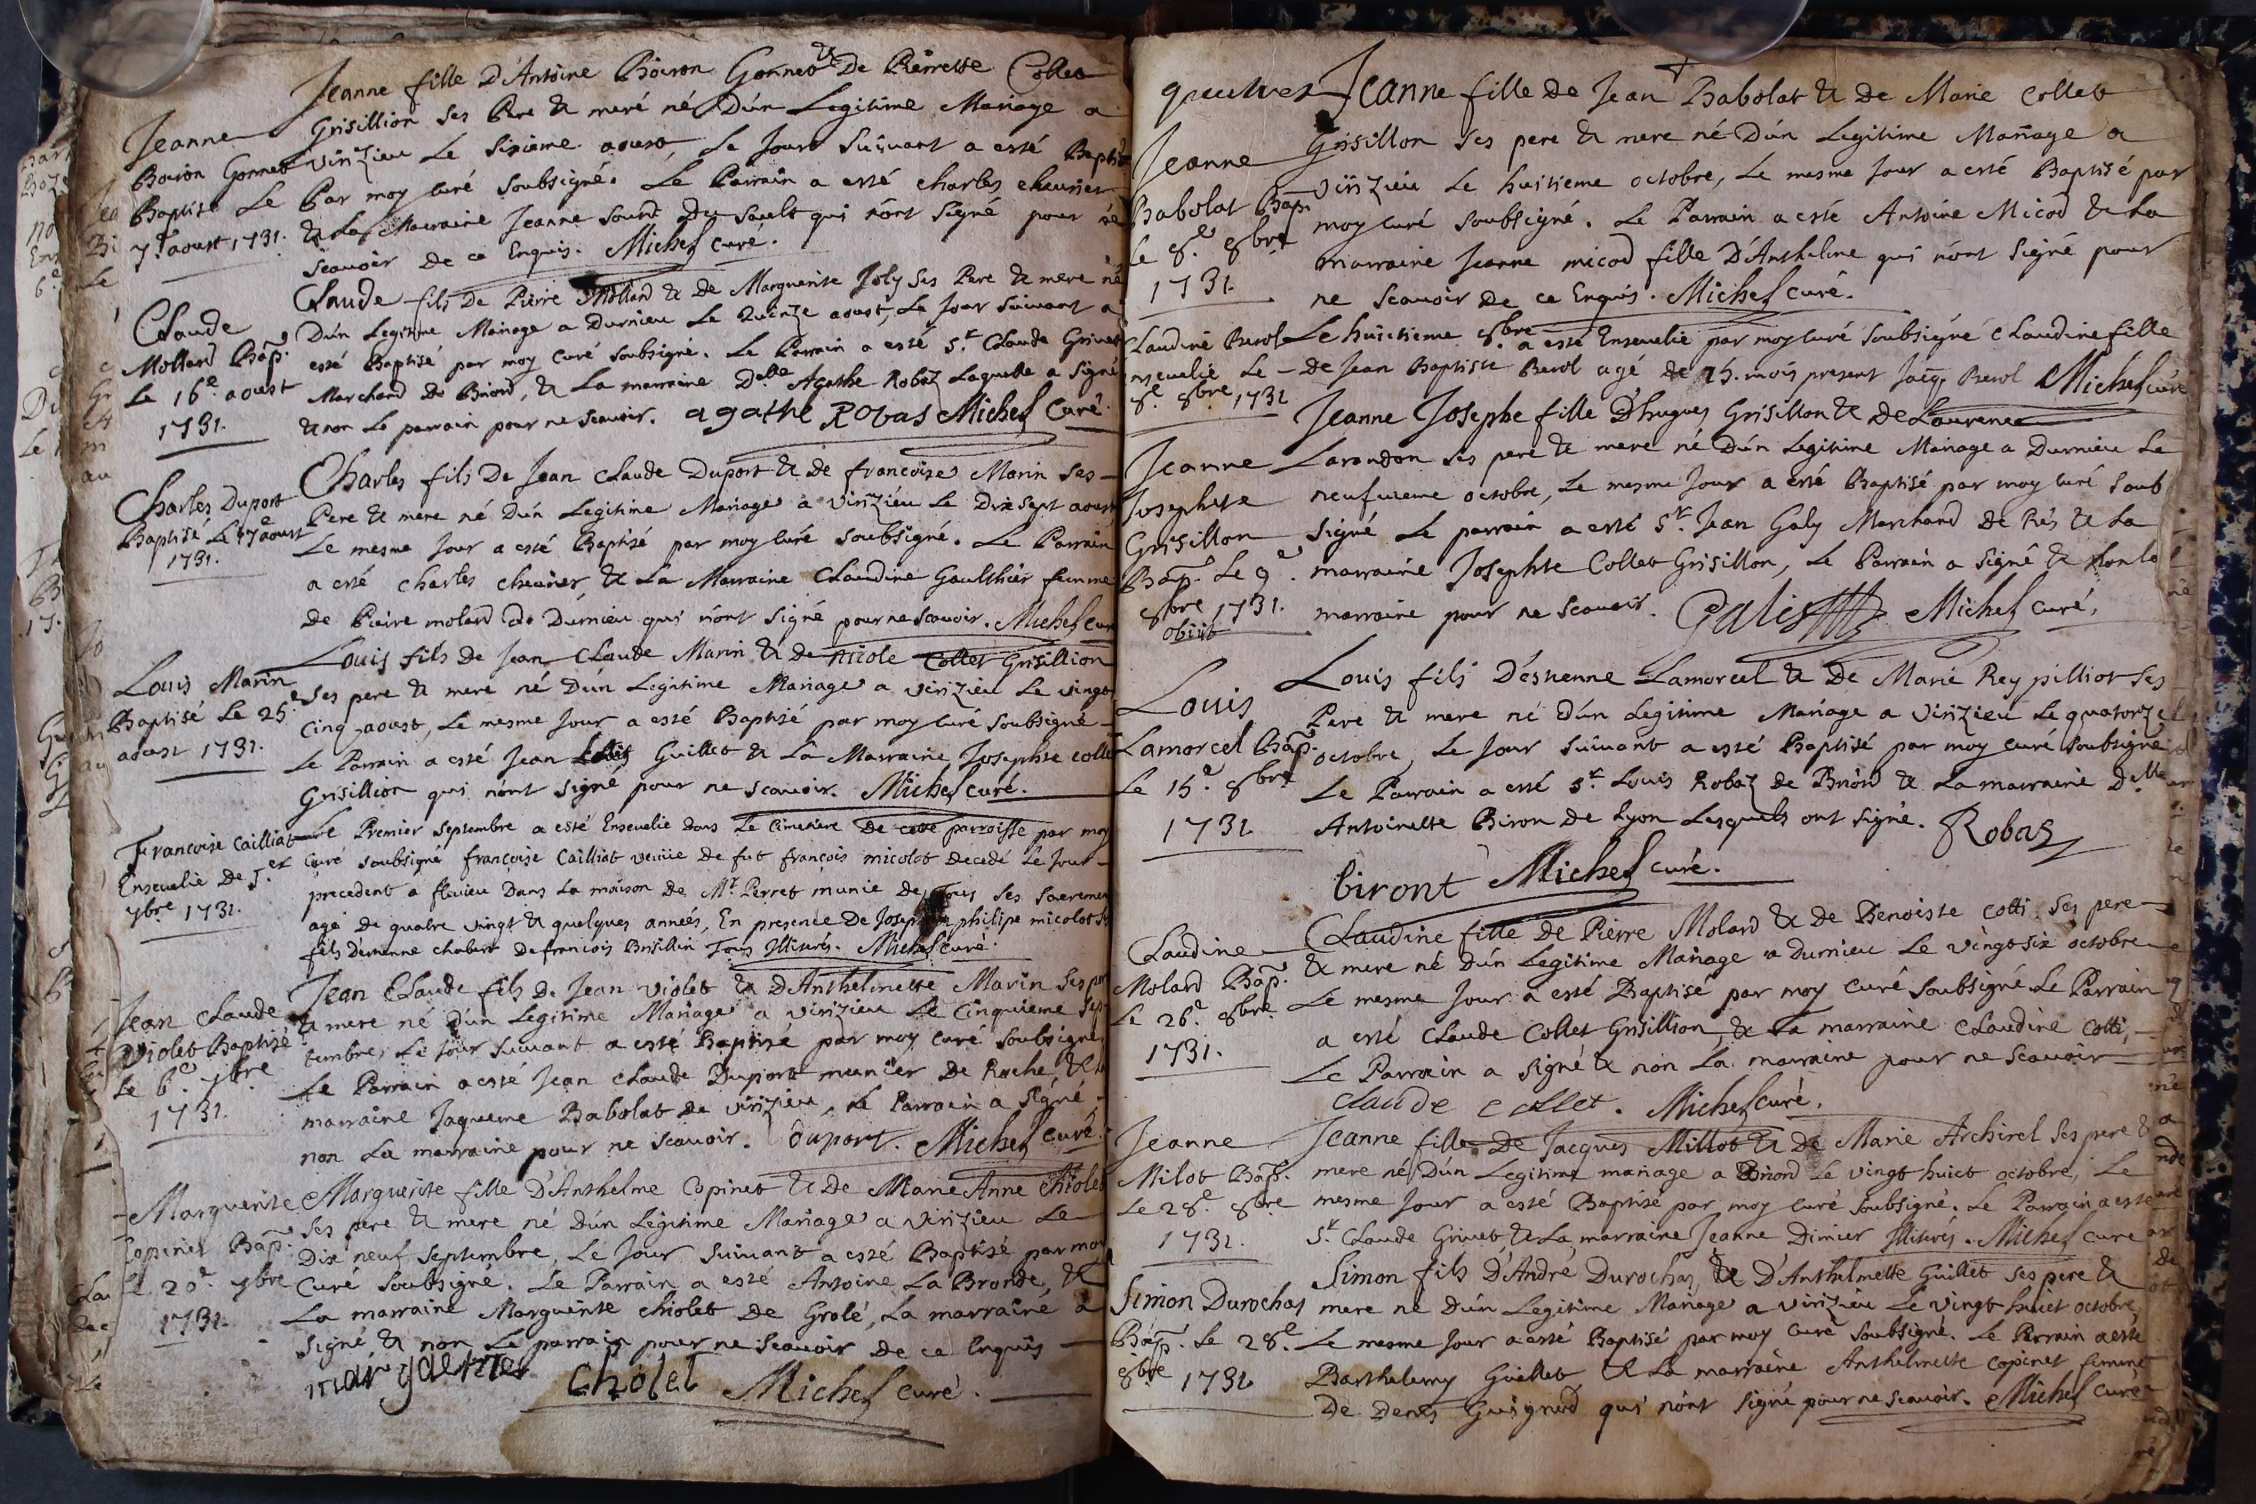 Jeanne
Boiron Gonnet
Baptisé Le
7e aoust 1731.
Jeanne fille D'Antoine Boiron Gonnet & De Pierrette Collet
Grisillion ses Pere & mere né D'ún Legitime Mariage a
virizieu Le sixieme aoust, Le Jour suivant a esté Baptisé
Par moy Curé soubsigné. Le Parrain a esté Charles cheurier
& La Marraine Jeanne qui n'ont signé pour ne
scauoir de ce Enquis. Michel curé.
Claude
Mollard Bap.
Le 16e aoust
1731.
Claude fils De Pierre Mollard & de Marguerite Joly ses Pere & mere né
D'un Legitime Mariage a Durnieu Le Quinze aoust, Le Jour suivant a
esté Baptisé par moy Curé soubsigné. Le Parrain a esté Sr. Claude Grivet
Marchand de Briord, & La marraine Delle Agathe Robaz Laquelle a signé
& non Le parrain pour ne scauoir. agathe Robas Michel Curé.
Charles Duport
Baptisé Le 17e aoust
1731.
Charles fils De Jean Claude Duport & de francoise Marin ses
Pere & mere né D'un Legitime Mariage a Virizieu Le Dix sept aoust
Le mesme Jour a esté Baptisé par moy Curé soubsigné. Le Parrain
a esté Charles cheurier, & La Marraine Claudine Gaulthier femme
de Piaire molard de Durnieu qui n'ont signé pour ne scauoir. Michel cur
Louis Marin
Baptisé Le 25e
aoust 1731.
Louis fils de Jean Claude Marin & de nicole Collet Grisillion
ses pere & mere né D'ún Legitime Mariage a virizieu Le vingt
cinq aoust, Le mesme Jour a esté Baptisé par moy Curé soubsigné
Le Parrain a esté Jean Guillet & La Marraine Josephte collet
Grisillion qui n'ont signé pour ne scauoir. Michel curé.
Francoise Cailliat
Enseuelie De 1er
7bre 1731.
Le Premier septembre a esté Enseuelie dans Le Cimetiere De cette parroisse par moy
Curé soubsigné françoise Cailliat veuue de fut françois micolot decedé Le Jour
precedent a flevieu Dans La maison de Mr Perret munie de Tous ses sacremen
agé de quatre vingt & quelques années, En presence De Joseph philipe micolot
fils D'etienne chabert de francois Brisillin Tous Illiterés. Michel curé.
Jean Claude
Violet Baptisé
Le 6e. 7bre
1731.
Jean Claude fils De Jean violet & D'Anthelmette Marin ses per
& mere né D'un Legitime Mariage a virizieu Le Cinquieme sep
tembre, Le Jour suivant a esté Baptisé par moy Curé soubsigné
Le Parrain a esté Jean Claude Duport munier De Ruche, & La
marraine Jaqueme Babolat de virizieu, Le Parrain a signé
non La marraine pour ne scauoir. Duport. Michel curé.
Marguerite
Copinet Bap.
Le 20e 7bre
1731.
Marguerite fille D'Anthelme Copinet & De Marie Anne Chiolet
ses pere & mere né D'ún Legitime Mariage a Virizieu Le
Dix neuf septembre, Le Jour suivant a esté Baptisé par moy
Curé soubsigné. Le Parrain a esté Antoine La Bronde, &
La marraine Marguerite chiolet de Grolé, La marraine a
signé & non Le parrain pour ne scauoir de ce Enquis
margueritte Cholet Michel curé.
Jeanne
Babolat Bap.
Le 8e. 8bre
1731.
Jeanne fille de Jean Babolat & de Marie Collet
Grisillon ses pere & mere né D'ún Legitime Mariage a
virizieu Le huitieme octobre, Le mesme Jour a esté Baptisé par
moy curé soubsigné. Le Parrain a esté Antoine Micod & La
marraine Jeanne micod fille D'Anthelme qui n'ont signé pour
ne scauoir de ce Enquis. Michel curé.
Claudine Berol
nseuelie Le
8e. 8bre 1731
Le huictieme 8bre a esté Enseuelie par moy curé soubsigné Claudine fille
de Jean Baptiste Berol agé de 25. mois present Jacq. Berol Michel curé
Jeanne
Josephte
Grisillon
Bap. Le 9e.
8bre 1731.
obiit
Jeanne Josephe fille D'hugues Grisillon & de Laurence
Larandon ses pere & mere né D'ún Legitime Mariage a Durnieu Le
neufuieme octobre, Le mesme Jour a esté Baptisé par moy Curé soub
signé Le parrain a esté Sr. Jean Galy Marchand de & La
marraine Josephte Collet Grisillon, Le Parrain a signé & Non La
marraine pour ne scauoir. Galis Michel curé,
Louis
Lamorcel Bap.
Le 15e. 8bre
1731
Louis fils D'éstienne Lamorcel & De Marie Rey pilliot ses
Pere & mere né d'ún Legitime Mariage a Virizieu Le quatorze
octobre, Le Jour suivant a esté Baptisé par moy curé soubsigné
Le Parrain a esté Sr. Louis Robaz de Briord & La marraine Delle
Antoinette Biron de Lyon Lesquels ont signé. Robas
biront Michel curé.
Claudine
Molard Bap.
Le 26e. 8bre
1731.
Claudine fille De Pierre Molard & de Benoiste cotti ses pere
& mere né d'un Legitime Mariage a Durnieu Le vingt six octobre
Le mesme Jour a esté Baptisé par moy Curé soubsigné Le Parrain
a esté Claude Collet Grisillion, & La marraine Claudine Cotti,
Le Parrain a signé & non La marraine pour ne scauoir
claude collet. Michel curé.
Jeanne
Milot Bap.
Le 28e. 8bre
1731.
Jeanne fille De Jacques Millot & De Marie Archirel ses pere &
mere né D'ún Legitime mariage a Briord Le vingt huict octobre, Le
mesme Jour a esté Baptisé par moy Curé soubsigné. Le Parrain a esté
Sr. Claude Grivet, & La marraine Jeanne Dimier Illiterés. Michel curé
Simon Durochat
Bap. Le 28e.
8bre 1731
Simon fils D'André Durochat & D'Anthelmette Guillet ses pere &
mere né D'ún Legitime Mariage a virizieu Le vingt huict octobre,
Le mesme Jour a esté Baptisé par moy Curé soubsigné. Le Parrain a esté
Barthelemy Guillet & La marraine Anthelmette Copinet femme
De Denis qui n'ont signé pour ne scauoir. Michel curé